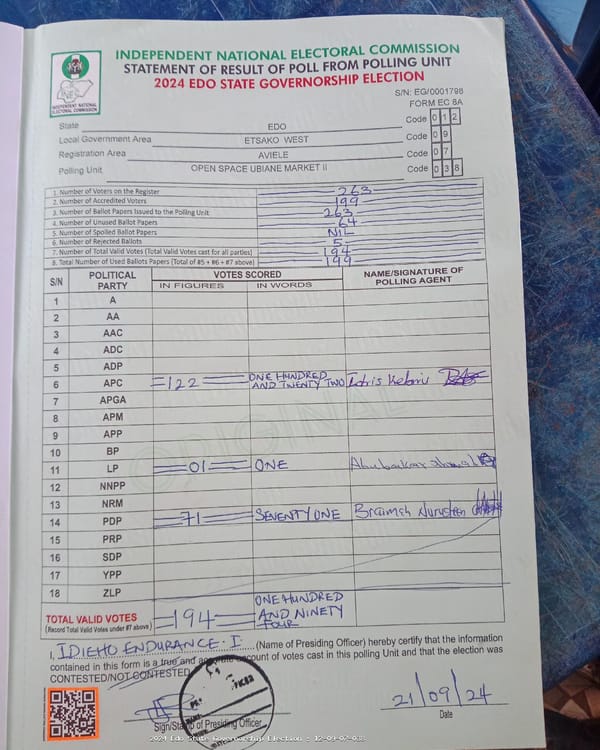 INDEPENDENT NATIONAL ELECTORAL COMMISSION
STATEMENT OF RESULT OF POLL FROM POLLING UNIT
2024 EDO STATE GOVERNORSHIP ELECTION
INDEPENDENT NATIONAL ELECTORAL COMMISSION
S/N: EG/0001798
FORM EC 8A
State EDO Code 0 1 2
Local Government Area ETSAKO WEST Code 0 9
Registration Area AVIELE Code 0 7
Polling Unit OPEN SPACE UBIANE MARKET II Code 0 3 8
1. Number of Voters on the Register 263
2. Number of Accredited Voters 199
3. Number of Ballot Papers Issued to the Polling Unit 263
4. Number of Unused Ballot Papers 64
5. Number of Spoiled Ballot Papers NIL
6. Number of Rejected Ballots 5
7. Number of Total Valid Votes (Total Valid Votes cast for all parties) 194
8. Total Number of Used Ballots Papers (Total of #5 + #6 + #7 above) 199
S/N POLITICAL PARTY VOTES SCORED NAME/SIGNATURE OF POLLING AGENT
IN FIGURES IN WORDS
1 A
2 AA
3 AAC
4 ADC
5 ADP
6 APC 122 ONE HUNDRED AND TWENTY TWO Idris
7 APGA
8 APM
9 APP
10 BP
11 LP 01 ONE Abubakar
12 NNPP
13 NRM
14 PDP 71 SEVENTY ONE Braimah
15 PRP
16 SDP
17 YPP
18 ZLP
TOTAL VALID VOTES 194 ONE HUNDRED AND NINETY FOUR
(Record Total Valid Votes under #7 above)
I, IDIEHO ENDURANCE. I (Name of Presiding Officer) hereby certify that the information
contained in this form is a true and account of votes cast in this polling Unit and that the election was
CONTESTED/NOT CONTESTED
21/09/24
Sign/Stamp of Presiding Officer
Date
ORIGINAL
2024 Edo State Governorship Election : 12-09-07-038